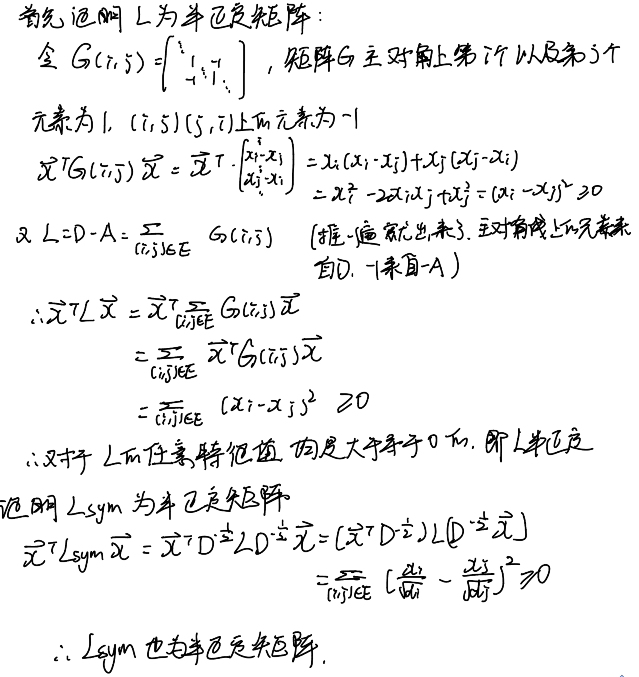 首先证明 L为半正定矩阵:
令 G(i,j) = [ 1 -1 -1 1 ] , 矩阵G主对角上第i个以及第j个
元素为1, (i,j)(j,i)上的元素为-1
x⃗ᵀG(i,j)x⃗ = x⃗ᵀ·[ xi-xj xj-xi ] = xi(xi-xj)+xj(xj-xi)
= xi²-2xixj+xj² = (xi-xj)² ≥0
又 L=D-A= Σ(i,j)∈E G(i,j) (推一遍就出来了. 主对角线上的元素来
自D, -1来自-A)
∴x⃗ᵀLx⃗ = x⃗ᵀ Σ(i,j)∈E G(i,j)x⃗
= Σ(i,j)∈E x⃗ᵀG(i,j)x⃗
= Σ(i,j)∈E (xi-xj)² ≥0
∴对于L的任意特征值 均是大于等于0的. 即L半正定
证明Lsym为半正定矩阵
x⃗ᵀLsym x⃗ = x⃗ᵀD^-½LD^-½x⃗ = (x⃗ᵀD^-½)L(D^-½x⃗)
= Σ(i,j)∈E (xi/√di - xj/√dj)² ≥0
∴ Lsym也为半正定矩阵.